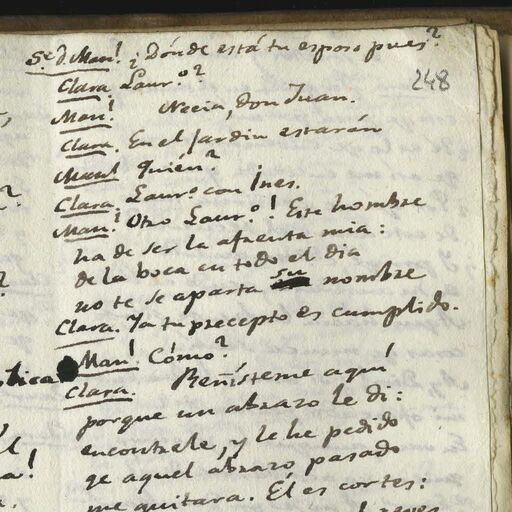 Se D. Man! ¿Dónde está tu esposo pues?
248
Clara Laur.º?
Man! Necia, don Juan.
Clara. En el jardín estarán
Man! Quién?
Clara. Laur.º con Ines.
Man! Otro Laur.º! Este hombre
ha de ser la afrenta mia:
de la boca en todo el dia
no te se aparta su nombre
Clara. Ya tu precepto es cumplido.
Man! Cómo?
Clara. Reñísteme aquí
porque un abrazo le di:
encontrele, y le he pedido
qe aquel abrazo pasado
me quitara. Él es cortes: